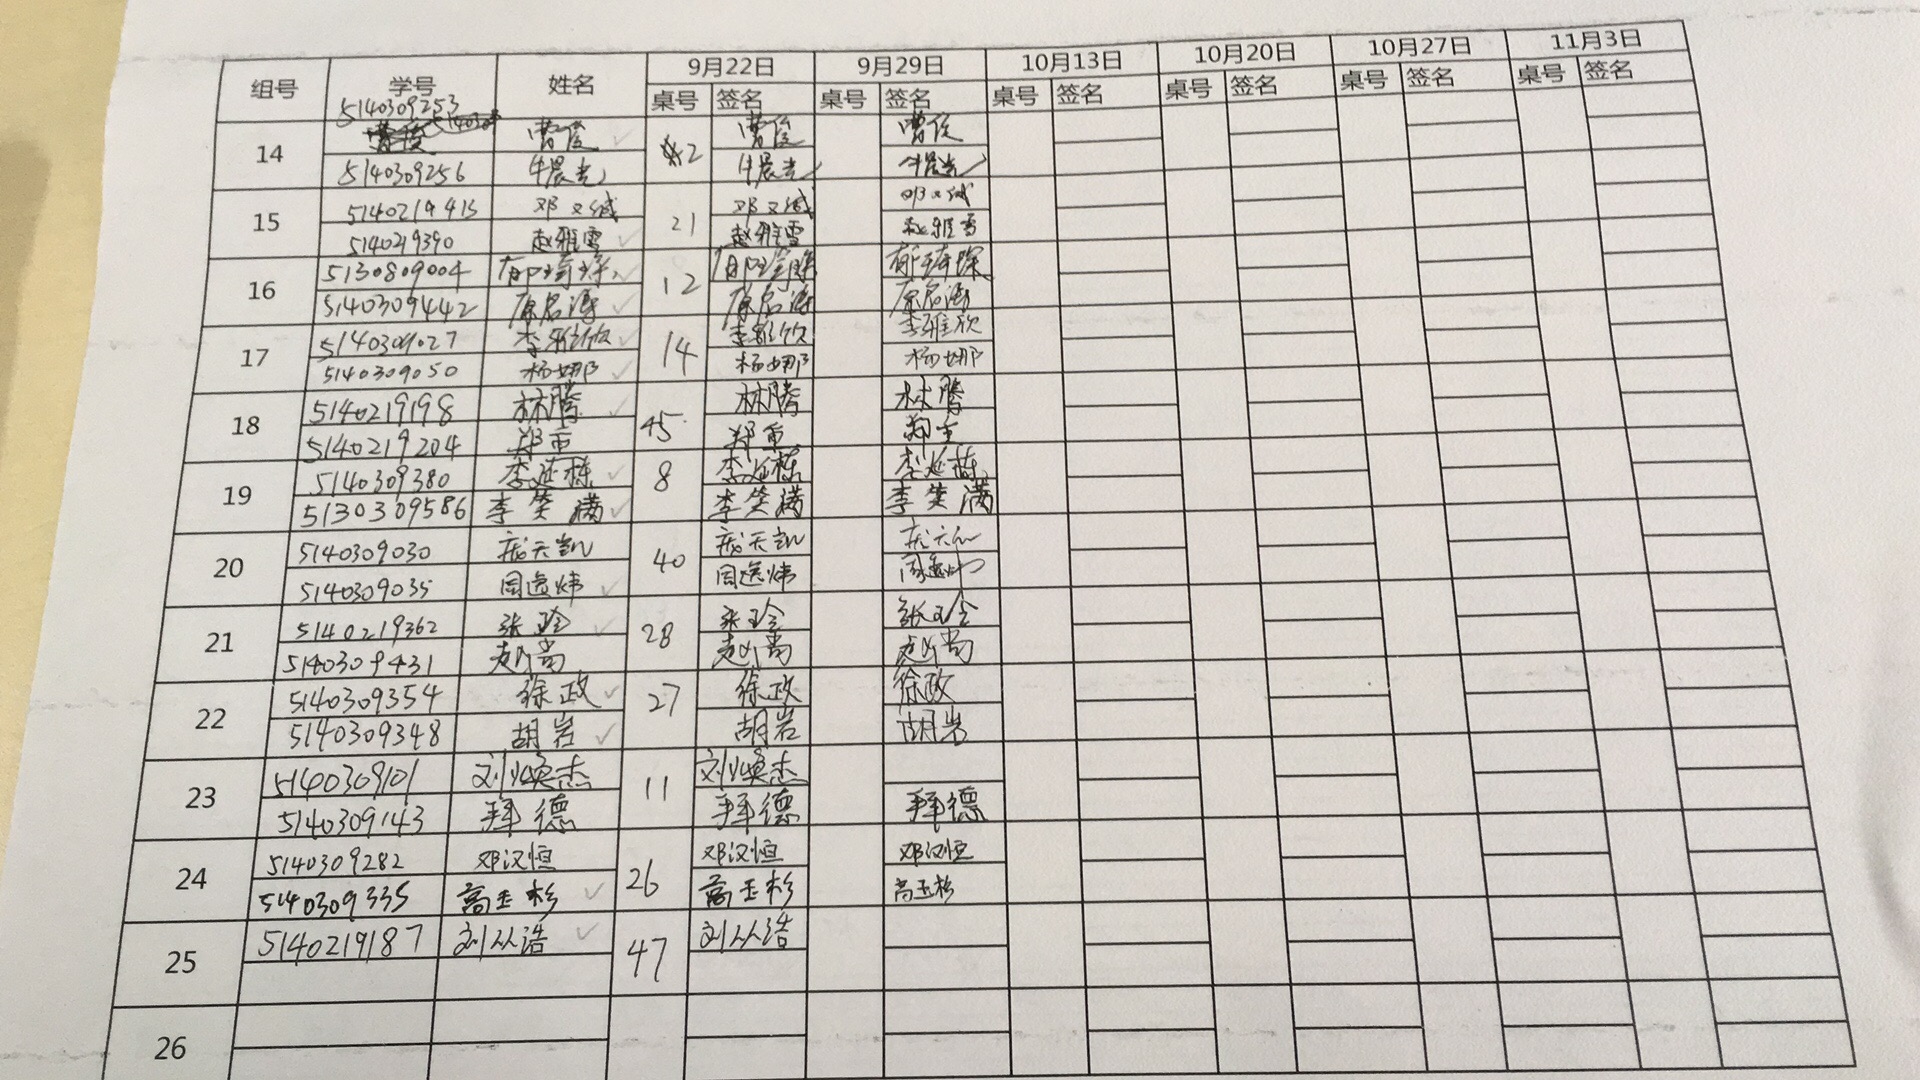 组号 学号 姓名 9月22日 9月29日 10月13日 10月20日 10月27日 11月3日
桌号 签名 桌号 签名 桌号 签名 桌号 签名 桌号 签名 桌号 签名
14 5140309253 曹俊 2 曹俊 曹俊
5140309256 牛晨光 牛晨光 牛晨光
15 5140219415 邓又诚 21 邓又诚 邓又诚
5140219390 赵雅雪 赵雅雪 赵雅雪
16 5130809004 郁琦琛 12 郁琦琛 郁琦琛
5140309442 原启涛 原启涛 原启涛
17 5140309027 李雅欣 14 李雅欣 李雅欣
5140309050 杨娜 杨娜 杨娜
18 5140219198 林腾 45 林腾 林腾
5140219204 郑重 郑重 郑重
19 5140309380 李延栋 8 李延栋 李延栋
5130309586 李笑满 李笑满 李笑满
20 5140309030 天凯 40 天凯
5140309035 周逸炜 周逸炜
21 5140219362 张玲 28 张玲 张玲
5140309431 赵尚 赵尚 赵尚
22 5140309354 徐政 27 徐政 徐政
5140309348 胡岩 胡岩 胡岩
23 5140309101 刘焕杰 11 刘焕杰
5140309143 拜德 拜德 拜德
24 5140309282 邓汉恒 26 邓汉恒 邓汉恒
5140309335 高玉杉 高玉杉 高玉杉
25 5140219187 刘从浩 47 刘从浩
26